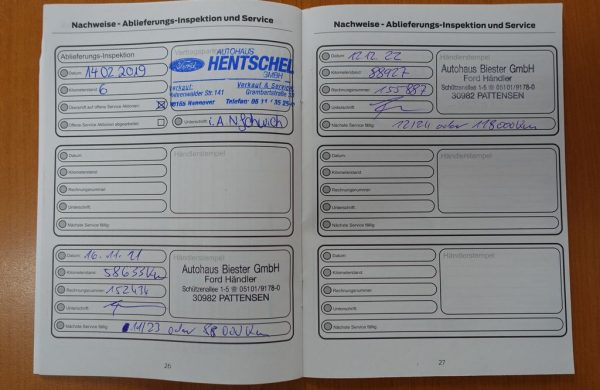 Nachweise - Ablieferungs-Inspektion und Service
Ablieferungs-Inspektion
Datum 14.02.2019
Kilometerstand 6
Überprüft auf offene Service Aktionen
Offene Service Aktionen abgearbeitet
Unterschrift i.A.
Ford
AUTOHAUS
HENTSCHEL
GMBH
Verkauf:
Verkauf & Service:
30165 Hannover Telefon: 05 11 /
Datum
Kilometerstand
Rechnungsnummer
Unterschrift
Nächste Service fällig
Händlerstempel
Datum 16.11.21
Kilometerstand 58633 Km
Rechnungsnummer 152434
Unterschrift
Nächste Service fällig 11/23 oder 88 000 Km
Händlerstempel
Autohaus Biester GmbH
Ford Händler
Schützenallee 1-5 ☏ 05101/9178-0
30982 PATTENSEN
26
Nachweise - Ablieferungs-Inspektion und Service
Datum 12.12.22
Kilometerstand 88927
Rechnungsnummer 155887
Unterschrift
Nächste Service fällig 12/24 oder 118000 Km
Autohaus Biester GmbH
Ford Händler
Schützenallee 1-5 ☏ 05101/9178-0
30982 PATTENSEN
Datum
Kilometerstand
Rechnungsnummer
Unterschrift
Nächste Service fällig
Händlerstempel
Datum
Kilometerstand
Rechnungsnummer
Unterschrift
Nächste Service fällig
Händlerstempel
27